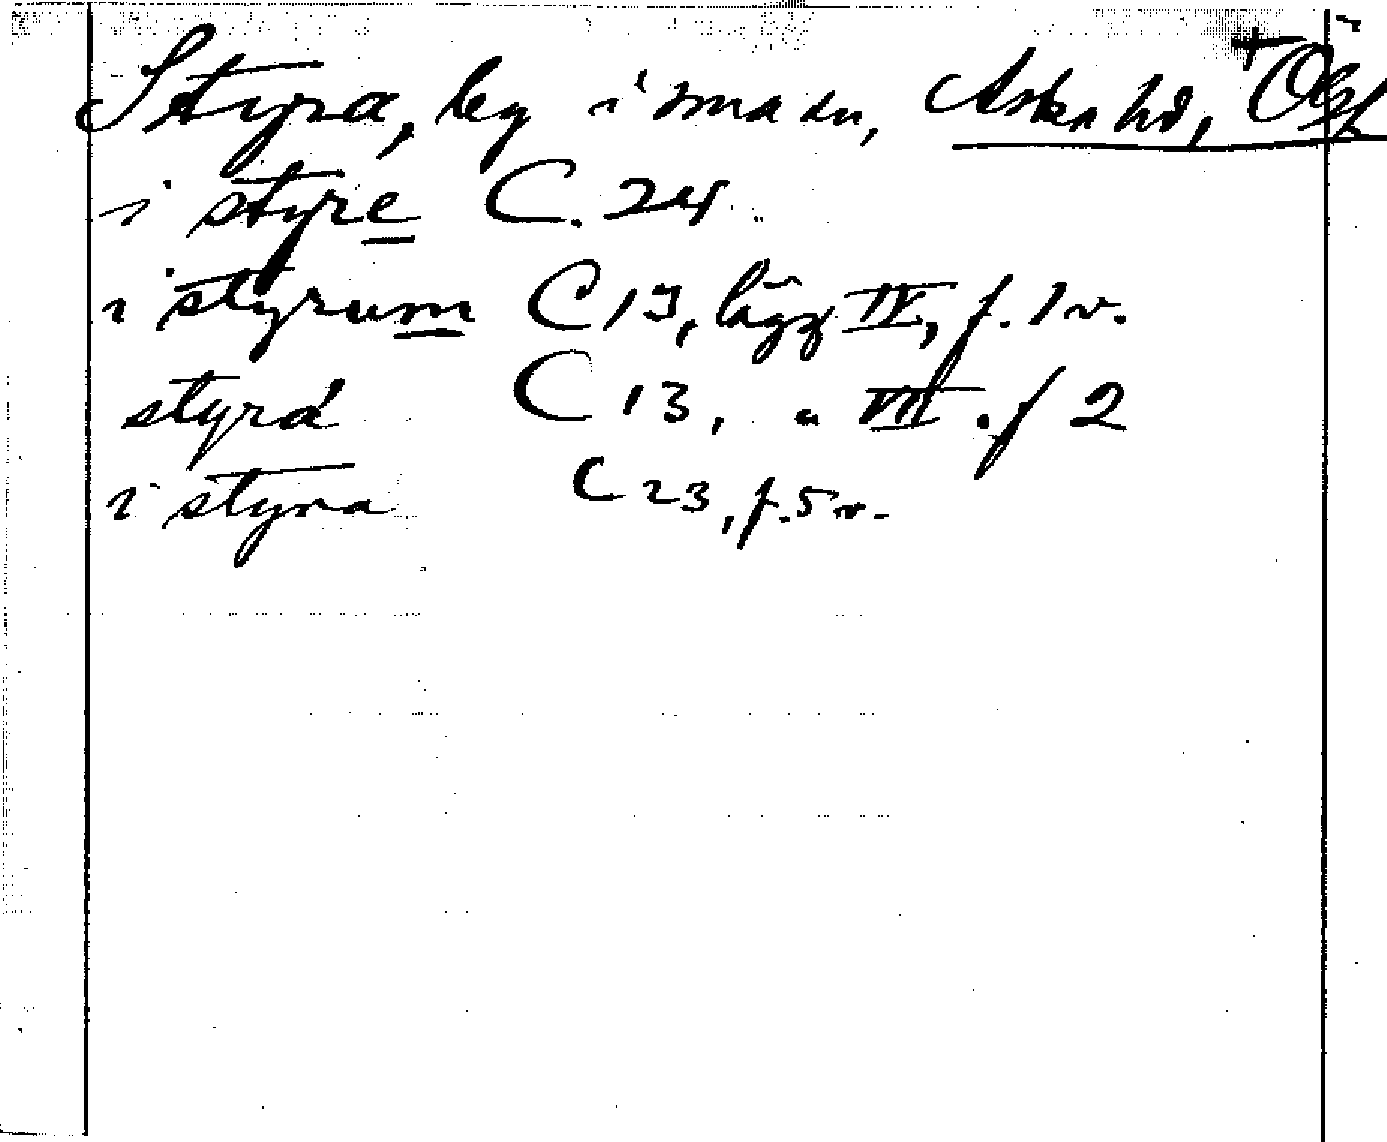 Styra, by i sma sn, Aska hd, Ög
i styre C. 24
i styrum C 13, lägg IV, f. 1 v.
styrá C 13, " VII . f 2
i styra C 23, f. 5 v.